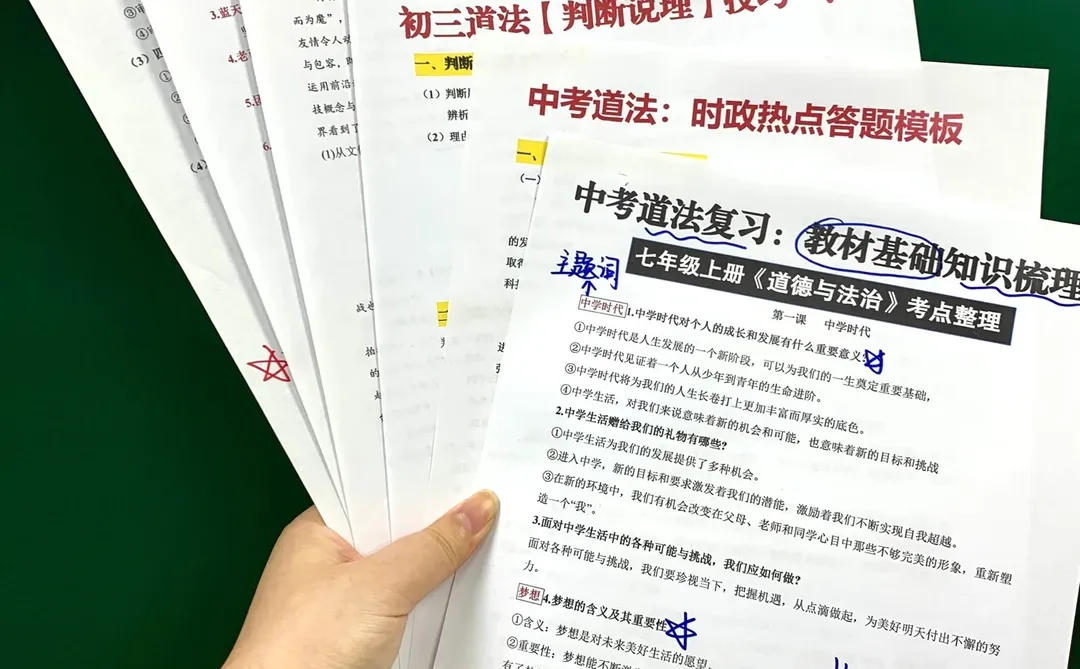 ③
④
(3) 四
①
②
(4)
3.蓝天
4.老
5.
6.
而为魔”，
友情令人动
与包容，
运用前沿
技概念与
界看到了
(1)从文
初三道法【判断说理】技巧
一、判断
（1）判断
辨析
（2）理由
中考道法：时政热点答题模板
一、
（一）
的发
取得
科
中考道法复习：教材基础知识梳理
主题词
七年级上册《道德与法治》考点整理
第一课 中学时代
中学时代 1.中学时代对个人的成长和发展有什么重要意义?
①中学时代是人生发展的一个新阶段，可以为我们的一生奠定重要基础，
②中学时代见证着一个人从少年到青年的生命进阶。
③中学时代将为我们的人生长卷打上更加丰富而厚实的底色。
④中学生活，对我们来说意味着新的机会和可能，也意味着新的目标和挑战
2.中学生活赠给我们的礼物有哪些?
①中学生活为我们的发展提供了多种机会。
②进入中学，新的目标和要求激发着我们的潜能，激励着我们不断实现自我超越。
③在新的环境中，我们有机会改变在父母、老师和同学心目中那些不够完美的形象，重新塑
造一个“我”。
3.面对中学生活中的各种可能与挑战，我们应如何做?
面对各种可能与挑战，我们要珍视当下，把握机遇，从点滴做起，为美好明天付出不懈的努
力。
梦想 4.梦想的含义及其重要性
①含义：梦想是对未来美好生活的愿望。
②重要性：梦想能不断激